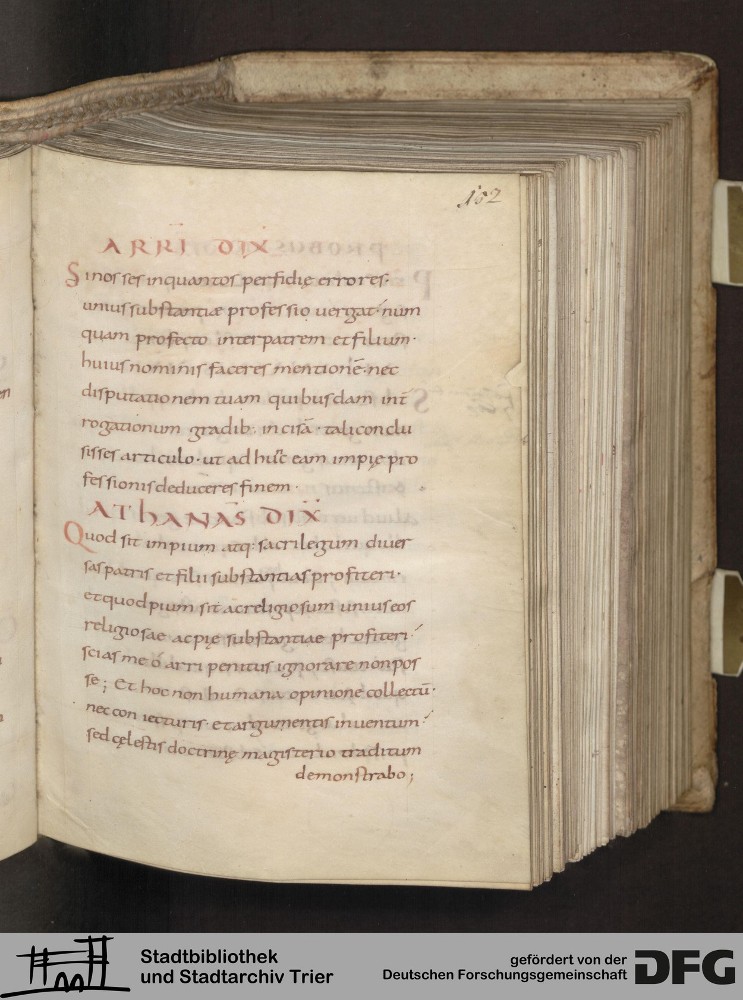 102
ARRI DIX̄
Sinosses inquantos perfidię errores·
unius substantiae professio vergat· num
quam profecto inter patrem et filium·
huius nominis faceres mentionē· nec
disputationem tuam quibusdam int̄
rogationum gradib: incisā· tali conclu
sisses articulo· ut ad hunc eam impię pro
fessionis deduceres finem·
AThANAS̄ DIX̄
Quod sit impium atq: sacrilegum diver
sas patris et filii substantias profiteri·
et quod pium sit ac religiosum unius eos
religiosae ac pię substantiae profiteri·
scias me o arri penitus ignorare non pos
se; Et hoc non humana opinione collectū·
nec coniecturis· et argumentis inventum·
sed cęlestis doctrinę magisterio traditum
demonstrabo;
Stadtbibliothek
und Stadtarchiv Trier
gefördert von der
Deutschen Forschungsgemeinschaft
DFG